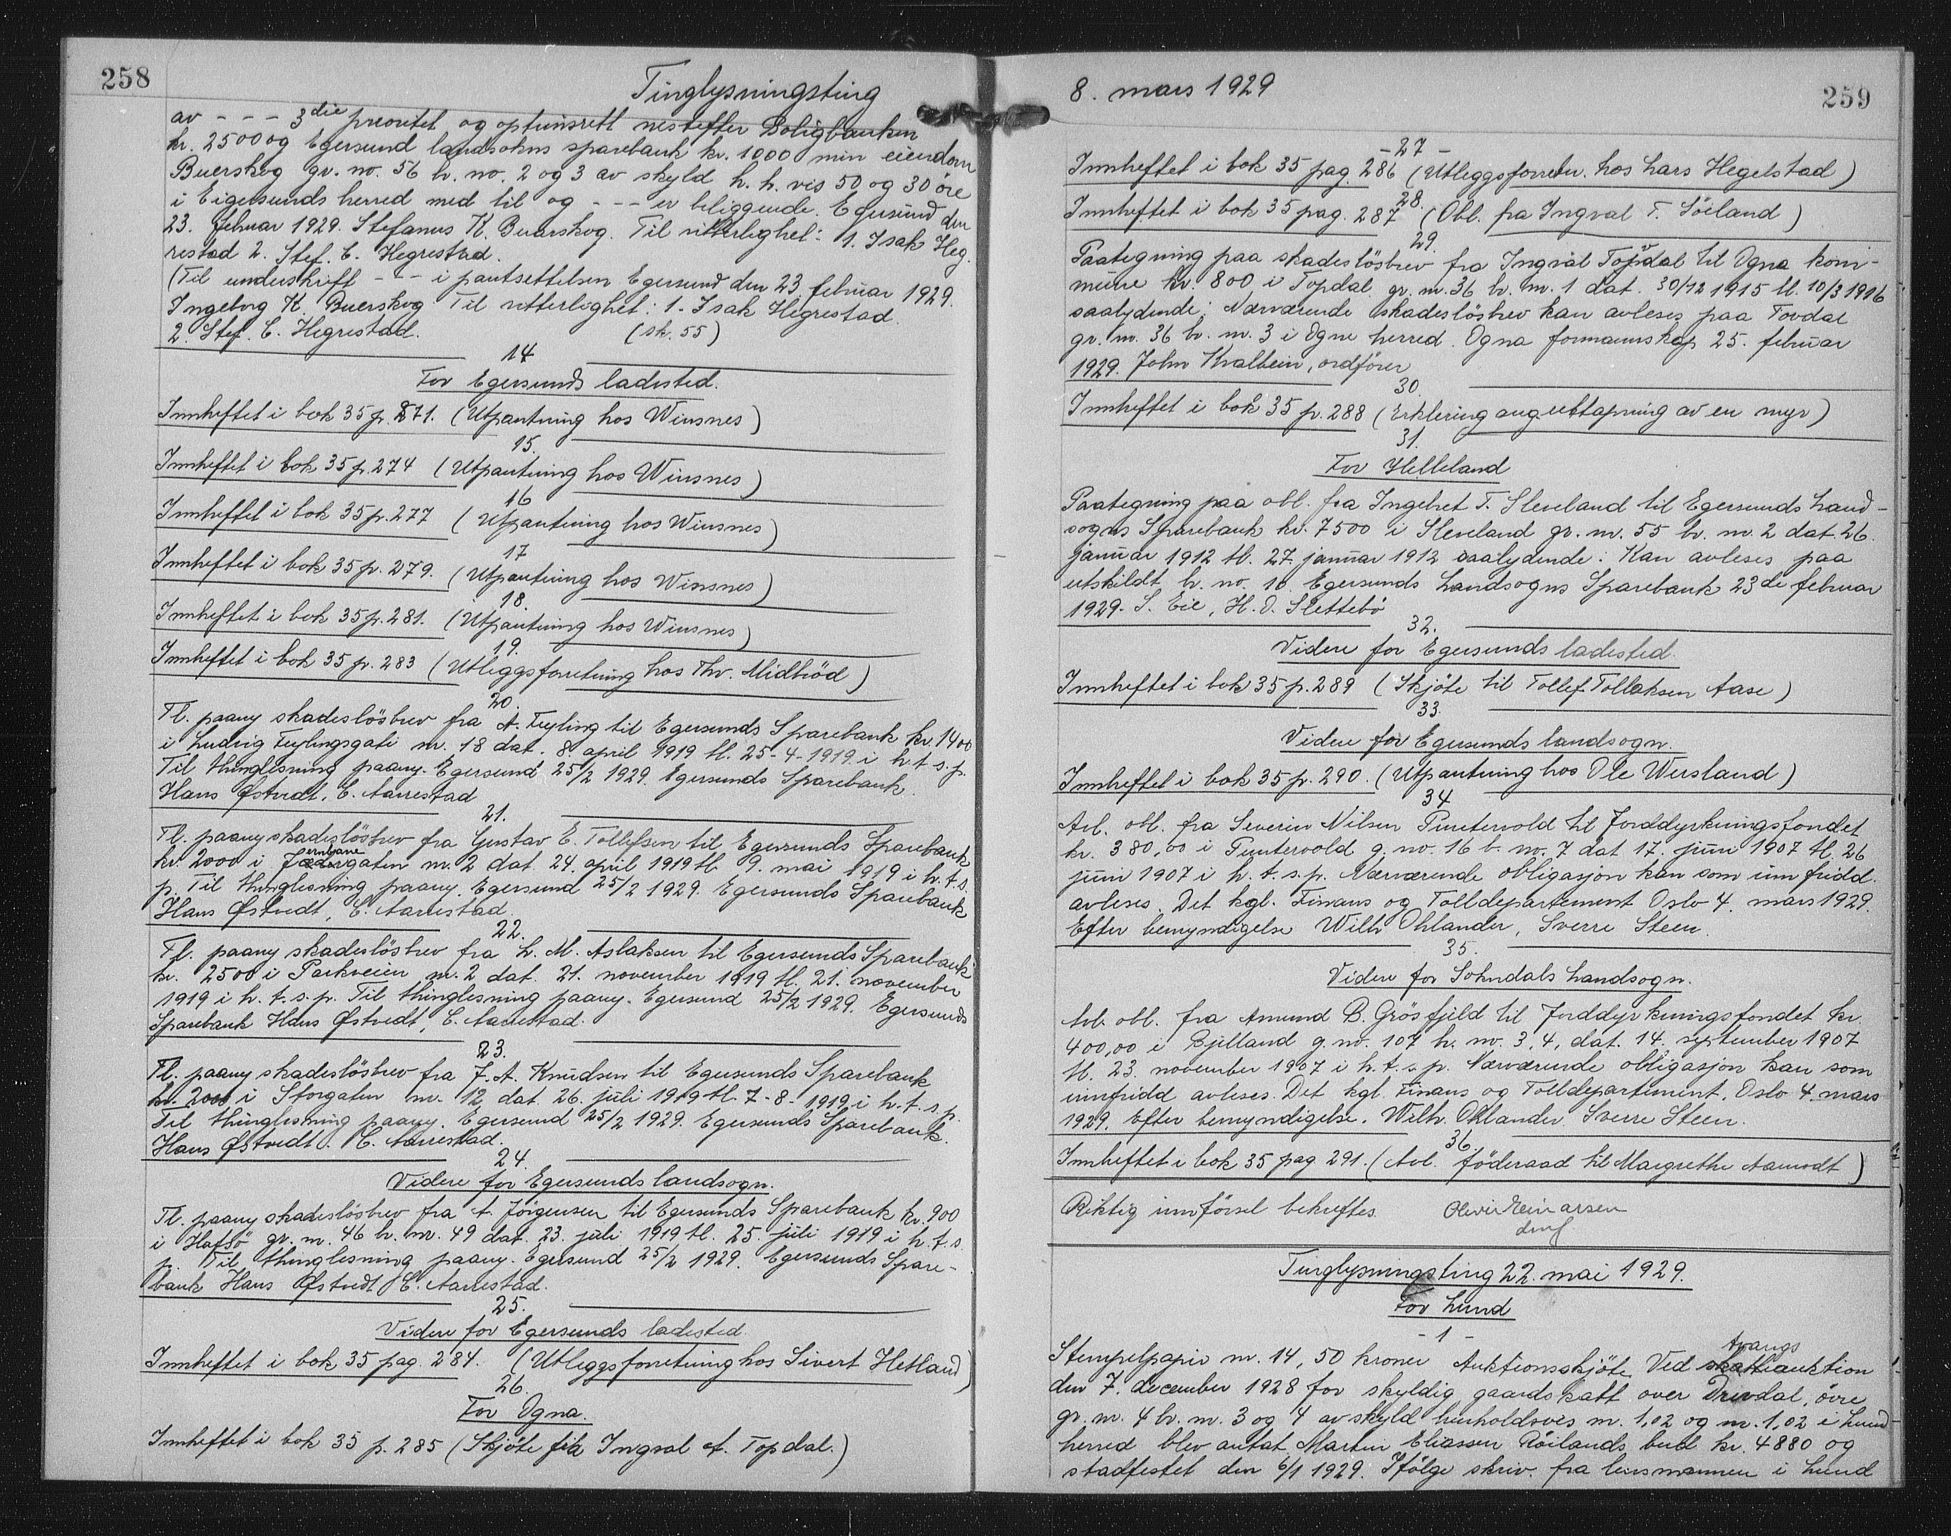 258
Tinglysningsting
av - - - 3die preoritet og optrinsrett nestefter Boligbanken
kr. 2500 og Egersund landsokns sparebank kr. 1000 min eiendom
Buerskog gr. no. 56 br. no. 2 og 3 av skyld h. h. vis 50 og 30 öre
i Eigersunds herred med til og - - - er beliggende. Egersund den
23. februar 1929. Stefanus K. Buarskog. Til vitterlighet: 1. Isak Heg-
restad 2. Stef. E. Hegrestad.
(Til underskrift - - - i pantsettelsen Egersund den 23 februar 1929.
Ingeborg K. Buerskog Til vitterlighet: 1. Isak Hegrestad
2. Stef. E. Hegrestad. (sk. 55)
14
For Egersunds ladested.
Innheftet i bok 35 p. 271. (Utpantning hos Winsnes)
15.
Innheftet i bok 35 p. 274 (Utpantning hos Winsnes)
16
Innheftet i bok 35 p. 277 (Utpantning hos Winsnes)
17
Innheftet i bok 35 p. 279. (Utpantning hos Winsnes)
18.
Innheftet i bok 35 p. 281. (Utpantning hos Winsnes)
19.
Innheftet i bok 35 p. 283 (Utleggsforretning hos Thv. Midbröd)
20.
Tl. paany skadeslösbrev fra A. Feyling til Egersunds Sparebank kr. 1400
i Ludvig Feylingsgati nr. 18 dat. 8 april 1919 tl. 25-4-1919 i h. t. s. p.
Til thinglesning paany. Egersund 25/2 1929. Egersunds Sparebank.
Hans Østvedt, E. Aarrestad
21.
Tl. paany skadeslösbrev fra Gustav E. Tollefsen til Egersunds Sparebank
kr. 2000 i Jernbanegaten nr. 2 dat. 24. april 1919 tl. 9. mai 1919 i h. t. s.
p. Til thinglesning paany. Egersund 25/2 1929. Egersunds Sparebank
Hans Østvedt, E. Aarrestad.
22.
Tl. paany skadeslösbrev fra L. M. Aslaksen til Egersunds Sparebank
kr. 2500 i Parkveien nr. 2 dat. 21. november 1919 tl. 21. november
1919 i h. t. s. p. Til thinglesning paany. Egersund 25/2 1929. Egersunds
Sparebank Hans Østvedt, E. Aarrestad.
23.
Tl. paany skadeslösbrev fra J. A. Knudsen til Egersunds Sparebank
kr. 2000 i Storgaten nr. 12 dat. 26. juli 1919 tl. 7-8-1919 i h. t. s. p.
Til thinglesning paany. Egersund 25/2 1929. Egersunds Sparebank.
Hans Østvedt. E. Aarrestad.
24.
Videre for Egersunds landsogn.
Tl. paany skadeslösbrev fra A. Jörgensen til Egersunds Sparebank kr. 900
i Hafsö gr. nr. 46 br. nr. 49 dat. 23. juli 1919 tl. 25. juli 1919 i h. t. s.
p. Til thinglesning paany. Egersund 25/2 1929. Egersunds Spare-
bank Hans Østvedt E. Aarrestad.
25.
Videre for Egersunds ladested.
Innheftet i bok 35 pag. 284. (Utleggsforretning hos Sivert Hetland)
26.
For Ogna.
Innheftet i bok 35 p. 285 (Skjöte fra Ingval A. Topdal.)
8. mars 1929
259
- 27 -
Innheftet i bok 35 pag. 286 (Utleggsforretn. hos Lars Hegelstad)
28.
Innheftet i bok 35 pag. 287 (Obl. fra Ingval T. Söiland)
29.
Paategning paa skadeslösbrev fra Ingval Topdal til Ogna kom-
mune kr. 800 i Topdal gr. nr. 36 br. nr. 1 dat. 30/12 1915 tl. 10/3 1916
saalydende: Nærværende skadeslösbrev kan avleses paa Tovdal
gr. nr. 36 br. nr. 3 i Ogne herred. Ogna formannskap 25. februar
1929. John Kvalbein, ordförer
30.
Innheftet i bok 35 p. 288 (Erklering ang. uttapning av en myr)
31.
For Helleland
Paategning paa obl. fra Ingebret T. Sleveland til Egersunds Land-
sogns Sparebank kr. 7500 i Sleveland gr. nr. 55 br. nr. 2 dat. 26.
januar 1912 tl. 27. januar 1912 saalydende: Kan avleses paa
utskildt br. no. 10 Egersunds Landsogns Sparebank 23de februar
1929. S. Eie, H. O. Slettebö
32.
Videre for Egersunds ladested.
Innheftet i bok 35 p. 289 (Skjöte til Tollef Tollaksen Aase)
33.
Videre for Egersunds landsogn.
Innheftet i bok 35 p. 290. (Utpantning hos Ole Wersland)
34
Avl. obl. fra Severin Nilsen Puntervold til Jorddyrkningsfondet
kr. 380,00 i Puntervold g. no. 16 b. no. 7 dat 17. juni 1907 tl. 26
juni 1907 i h. t. s. p. Nærværende obligasjon kan som innfridd
avleses. Det kgl. Finans og Tolldepartement Oslo 4. mars 1929.
Efter bemyndigelse Wilh. Ohlander, Sverre Steen.
35.
Videre for Sohndals Landsogn.
Avl. obl. fra Amund B. Grösfjeld til Jorddyrkningsfondet kr.
400,00 i Bjelland g. no. 107 br. nr. 3, 4, dat. 14. september 1907
tl. 23. november 1907 i h. t. s. p. Nærværende obligasjon kan som
innfridd avleses. Det kgl. Finans og Tolldepartement. Oslo 4. mars
1929. Efter bemyndigelse. Wilh. Ohlander. Sverre Steen.
36.
Innheftet i bok 35 pag. 291. (Avl. föderaad til Margrethe Aamodt)
Riktig innförsel bekreftes. Oliver Reinarsen
dmf
Tinglysningsting 22. mai 1929.
For Lund
- 1 -
Stempelpapir nr. 14, 50 kroner Auktionsskjöte Ved tvangsauktion
den 7. december 1928 for skyldig gaardskatt over Drivdal, övre
gr. nr. 4 br. nr. 3 og 4 av skyld henholdsvis m. 1,02 og m. 1,02 i Lund
herred blev antat Martin Eliassen Röilands bud kr. 4880 og
stadfestet den 6/1 1929. Ifölge skriv. fra lensmannen i Lund